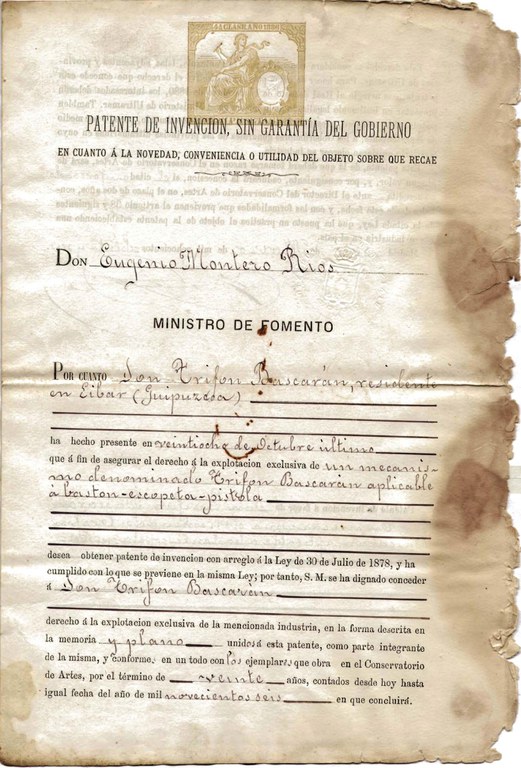 PATENTE DE INVENCION, SIN GARANTÍA DEL GOBIERNO
EN CUANTO Á LA NOVEDAD, CONVENIENCIA O UTILIDAD DEL OBJETO SOBRE QUE RECAE
DON Eugenio Montero Rios
MINISTRO DE FOMENTO
POR CUANTO Don Trifon Bascarán, residente
en Eibar (Guipuzcoa)
ha hecho presente en veintiocho de Octubre último
que á fin de asegurar el derecho á la explotacion exclusiva de un mecanis-
mo denominado Trifon Bascarán aplicable
á baston-escopeta-pistola
desea obtener patente de invencion con arreglo á la Ley de 30 de Julio de 1878, y ha
cumplido con lo que se previene en la misma Ley; por tanto, S. M. se ha dignado conceder
á Don Trifon Bascarán
derecho á la explotacion exclusiva de la mencionada industria, en la forma descrita en
la memoria y plano unidos á esta patente, como parte integrante
de la misma, y conforme en un todo con los ejemplares que obra en el Conservatorio
de Artes, por el término de veinte años, contados desde hoy hasta
igual fecha del año de mil novecientos seis en que concluirá.